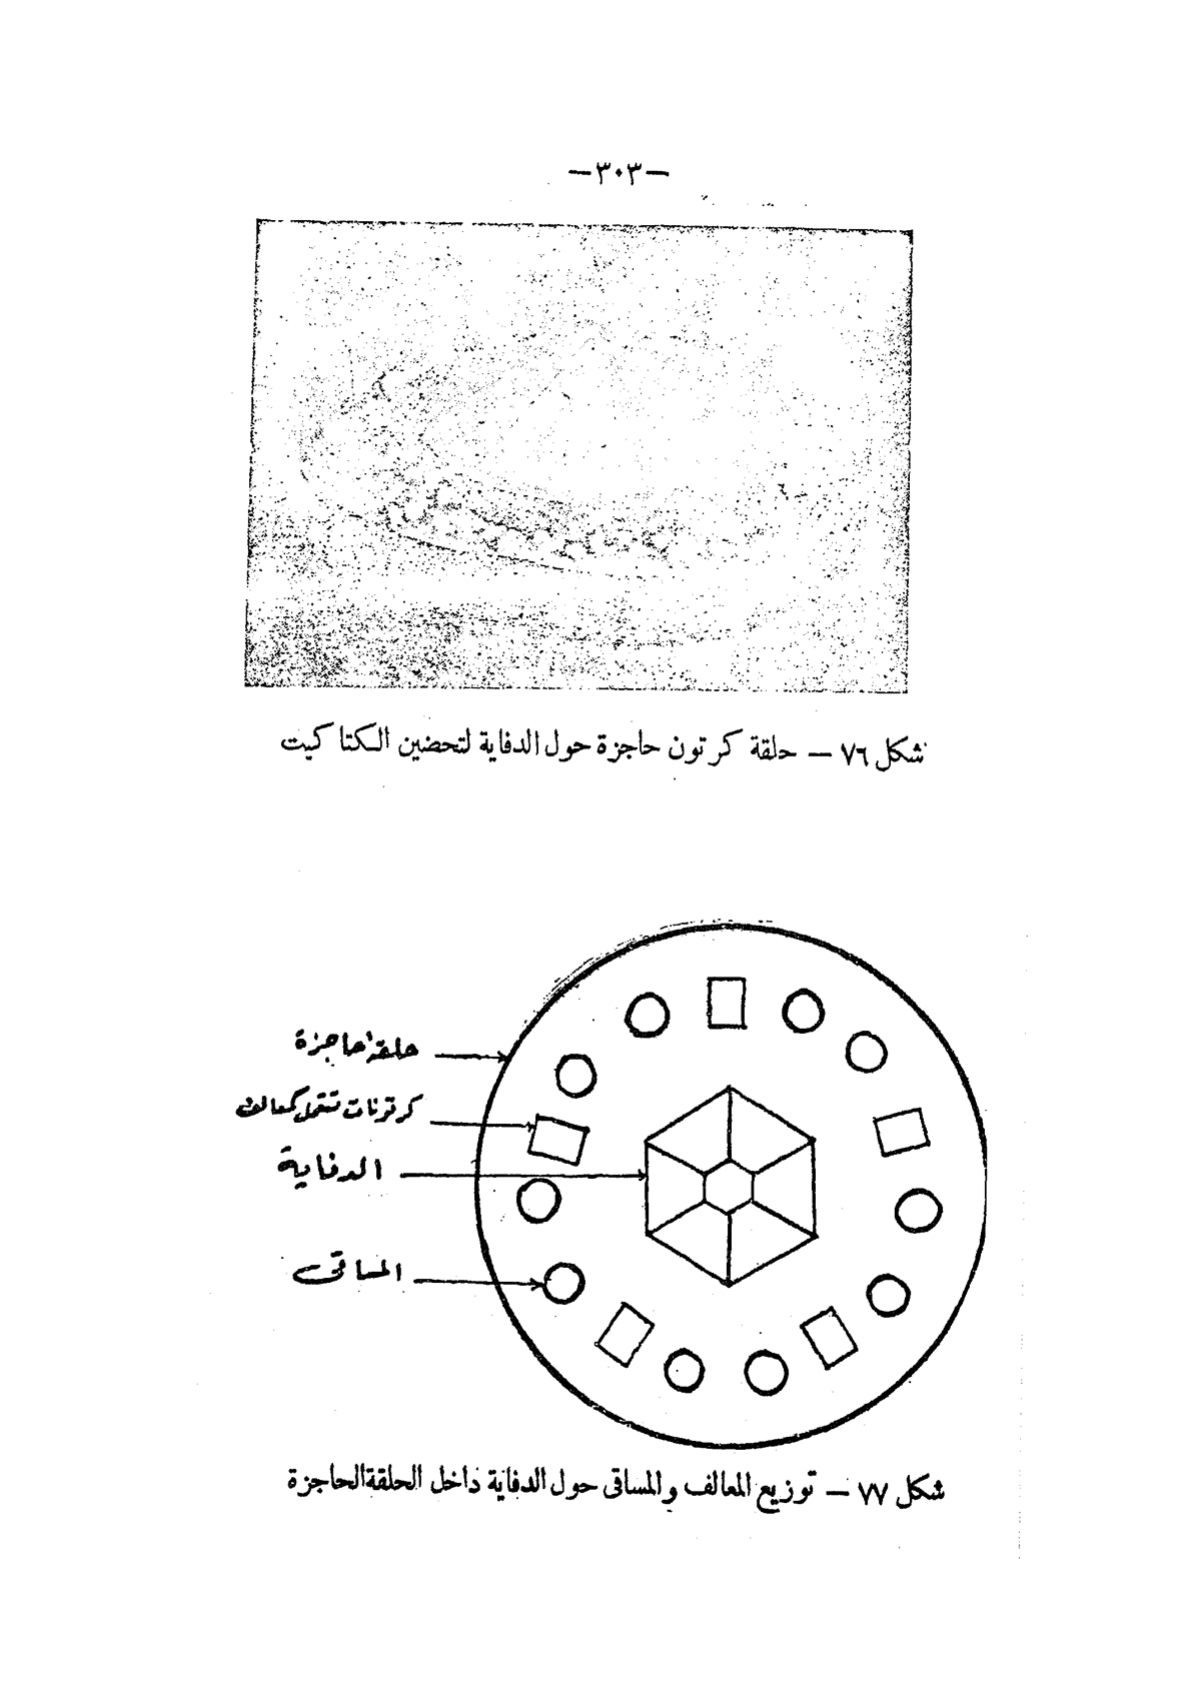 —٣٠٣—
شكل ٧٦ — حلقة كرتون حاجزة حول الدفاية لتحضين الكتاكيت
حلقة حاجزة
كرتونات تستعمل كمعالف
الدفاية
المساقى
شكل ٧٧ — توزيع المعالف والمساقى حول الدفاية داخل الحلقة الحاجزة